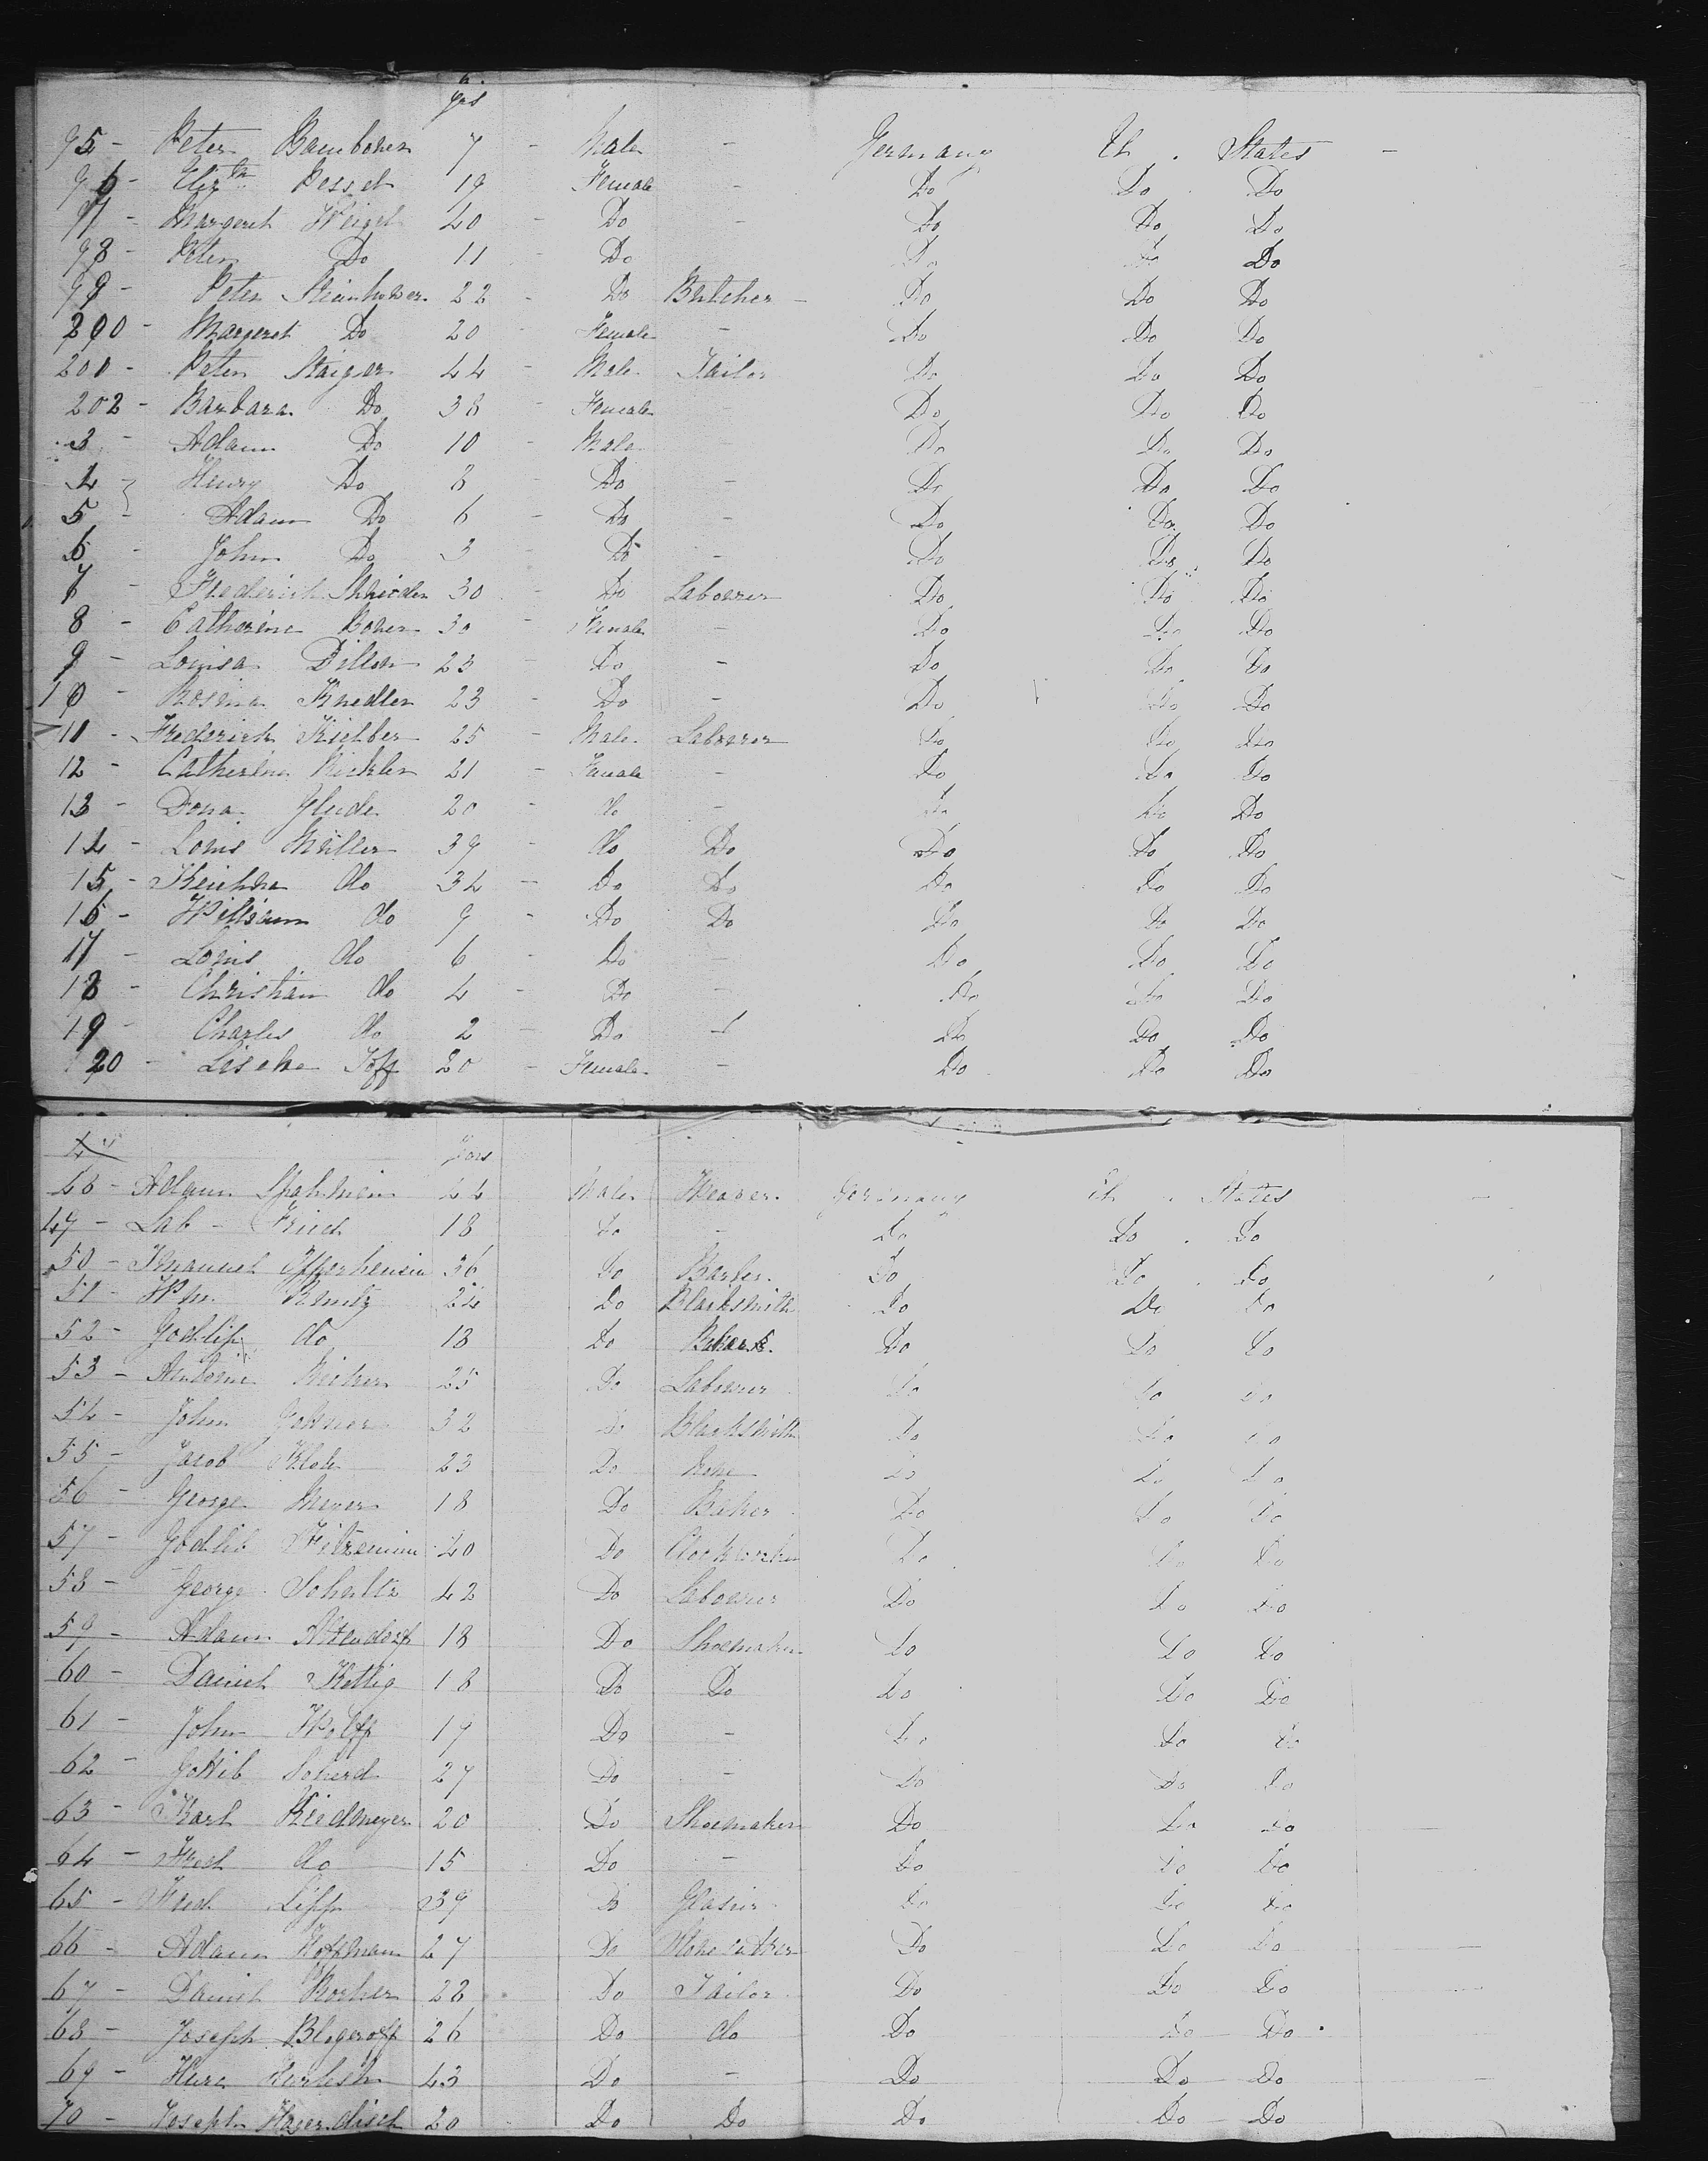 yrs
95 - Peter Bamboner 7 - Male - Germany U. States -
96 - Eliz th Pessel 19 Female - Do Do Do
97 - Margeret Weigel 40 - Do - Do Do Do
98 - Peter Do 11 - Do Do Do Do
99 - Peter Steinhower 22 - Do Butcher - Do Do Do
200 - Margeret Do 20 - Female - Do Do Do
201 - Peter Staiger 44 - Male Tailor Do Do Do
202 - Barbara Do 38 - Female Do Do Do
3 - Adam Do 10 - Male - Do Do Do
4 - Henry Do 8 - Do - Do Do Do
5 - Adam Do 6 - Do - Do Do Do
6 - John Do 3 - Do - Do Do Do
7 - Frederick Shneider 30 - Do Labourer Do Do Do
8 - Catherine Boner 30 - Female - Do Do Do
9 - Louisa Diller 23 - Do - Do Do Do
10 - Rosina Knedler 23 - Do - Do Do Do
11 - Frederick Kielber 25 - Male Labourer Do Do Do
12 - Catherine Rickler 21 - Female - Do Do Do
13 - Dora Glude 20 - do - Do Do Do
14 - Louis Müller 39 - do Do Do Do Do
15 - do 34 - Do Do Do Do Do
16 - William do 9 - Do Do Do Do Do
17 - Louis do 6 - Do - Do Do Do
18 - Christian do 4 - Do - Do Do Do
19 - Charles do 2 - Do - Do Do Do
20 - Liseke Hoff 20 - Female - Do Do Do
Yars
48 - Adam 44 Male Weaver Germany U. States -
49 - Lab - Fried 18 Do - Do Do Do
50 - Emanuel Opperheim 36 Do Barber Do Do Do
51 - Wm Runtz 24 Do Blacksmith Do Do Do
52 - Godlip do 18 Do Baker Do Do Do
53 - Antoine Bricker 25 Do Labourer Do Do Do
54 - John 32 Do Blacksmith Do Do Do
55 - Jacob Klob 23 Do None Do Do Do
56 - George Meyer 18 Do Baker Do Do Do
57 - Godlib 40 Do Clockworker Do Do Do
58 - George Schultz 42 Do Labourer Do Do Do
59 - Adam Altendorf 18 Do Shoemaker Do Do Do
60 - Daniel Kettig 18 Do Do Do Do Do
61 - John Wolff 19 Do - Do Do Do
62 - Gottlib Scherd 27 Do - Do Do Do
63 - Karl Riedmeyer 20 Do Shoemaker Do Do Do
64 - Fred do 15 Do - Do Do Do
65 - Fred Lipp 39 Do Glasier Do Do Do
66 - Adam Hoffman 27 Do Stonecutter Do Do Do
67 - Daniel Rocker 28 Do Tailor Do Do Do
68 - Joseph Blogeroff 26 Do do Do Do Do
69 - 43 Do - Do Do Do
70 - Joseph Hagerdisch 20 Do Do Do Do Do